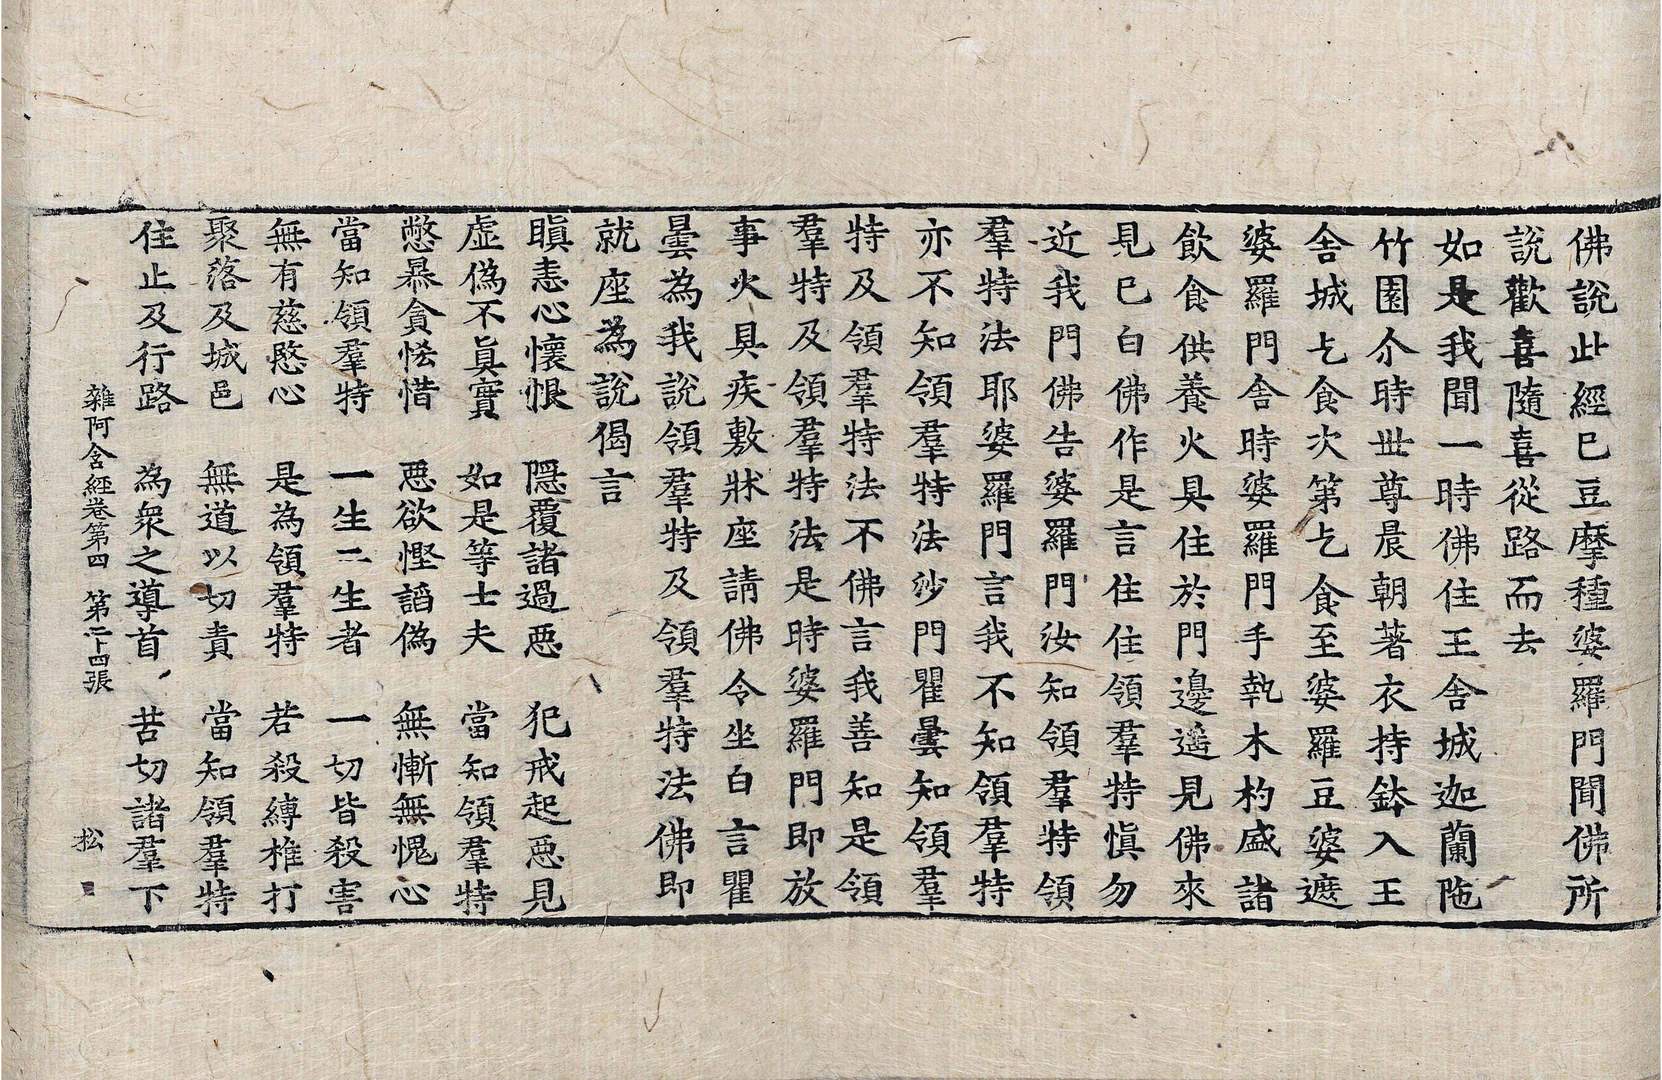 佛說此經已豆摩種婆羅門聞佛所
說歡喜隨喜從路而去
如是我聞一時佛住王舍城迦蘭陁
竹園尒時世尊晨朝著衣持鉢入王
舍城乞食次第乞食至婆羅豆婆遮
婆羅門舍時婆羅門手執木杓盛諸
飲食供養火具住於門邊遥見佛來
見已白佛作是言住住領羣特慎勿
近我門佛告婆羅門汝知領羣特領
羣特法耶婆羅門言我不知領羣特
亦不知領羣特法沙門瞿曇知領羣
特及領羣特法不佛言我善知是領
羣特及領羣特法是時婆羅門即放
事火具疾敷牀座請佛令坐白言瞿
曇為我說領羣特及領羣特法佛即
就座為說偈言
瞋恚心懷恨 隱覆諸過惡 犯戒起惡見
虛偽不眞實 如是等士夫 當知領羣特
憋暴貪悋惜 惡欲慳諂偽 無慚無愧心
當知領羣特 一生二生者 一切皆殺害
無有慈愍心 是為領羣特 若殺縛椎打
聚落及城邑 無道以切責 當知領羣特
住止及行路 為衆之導首 苦切諸羣下
雜阿含經卷第四 第二十四張 松